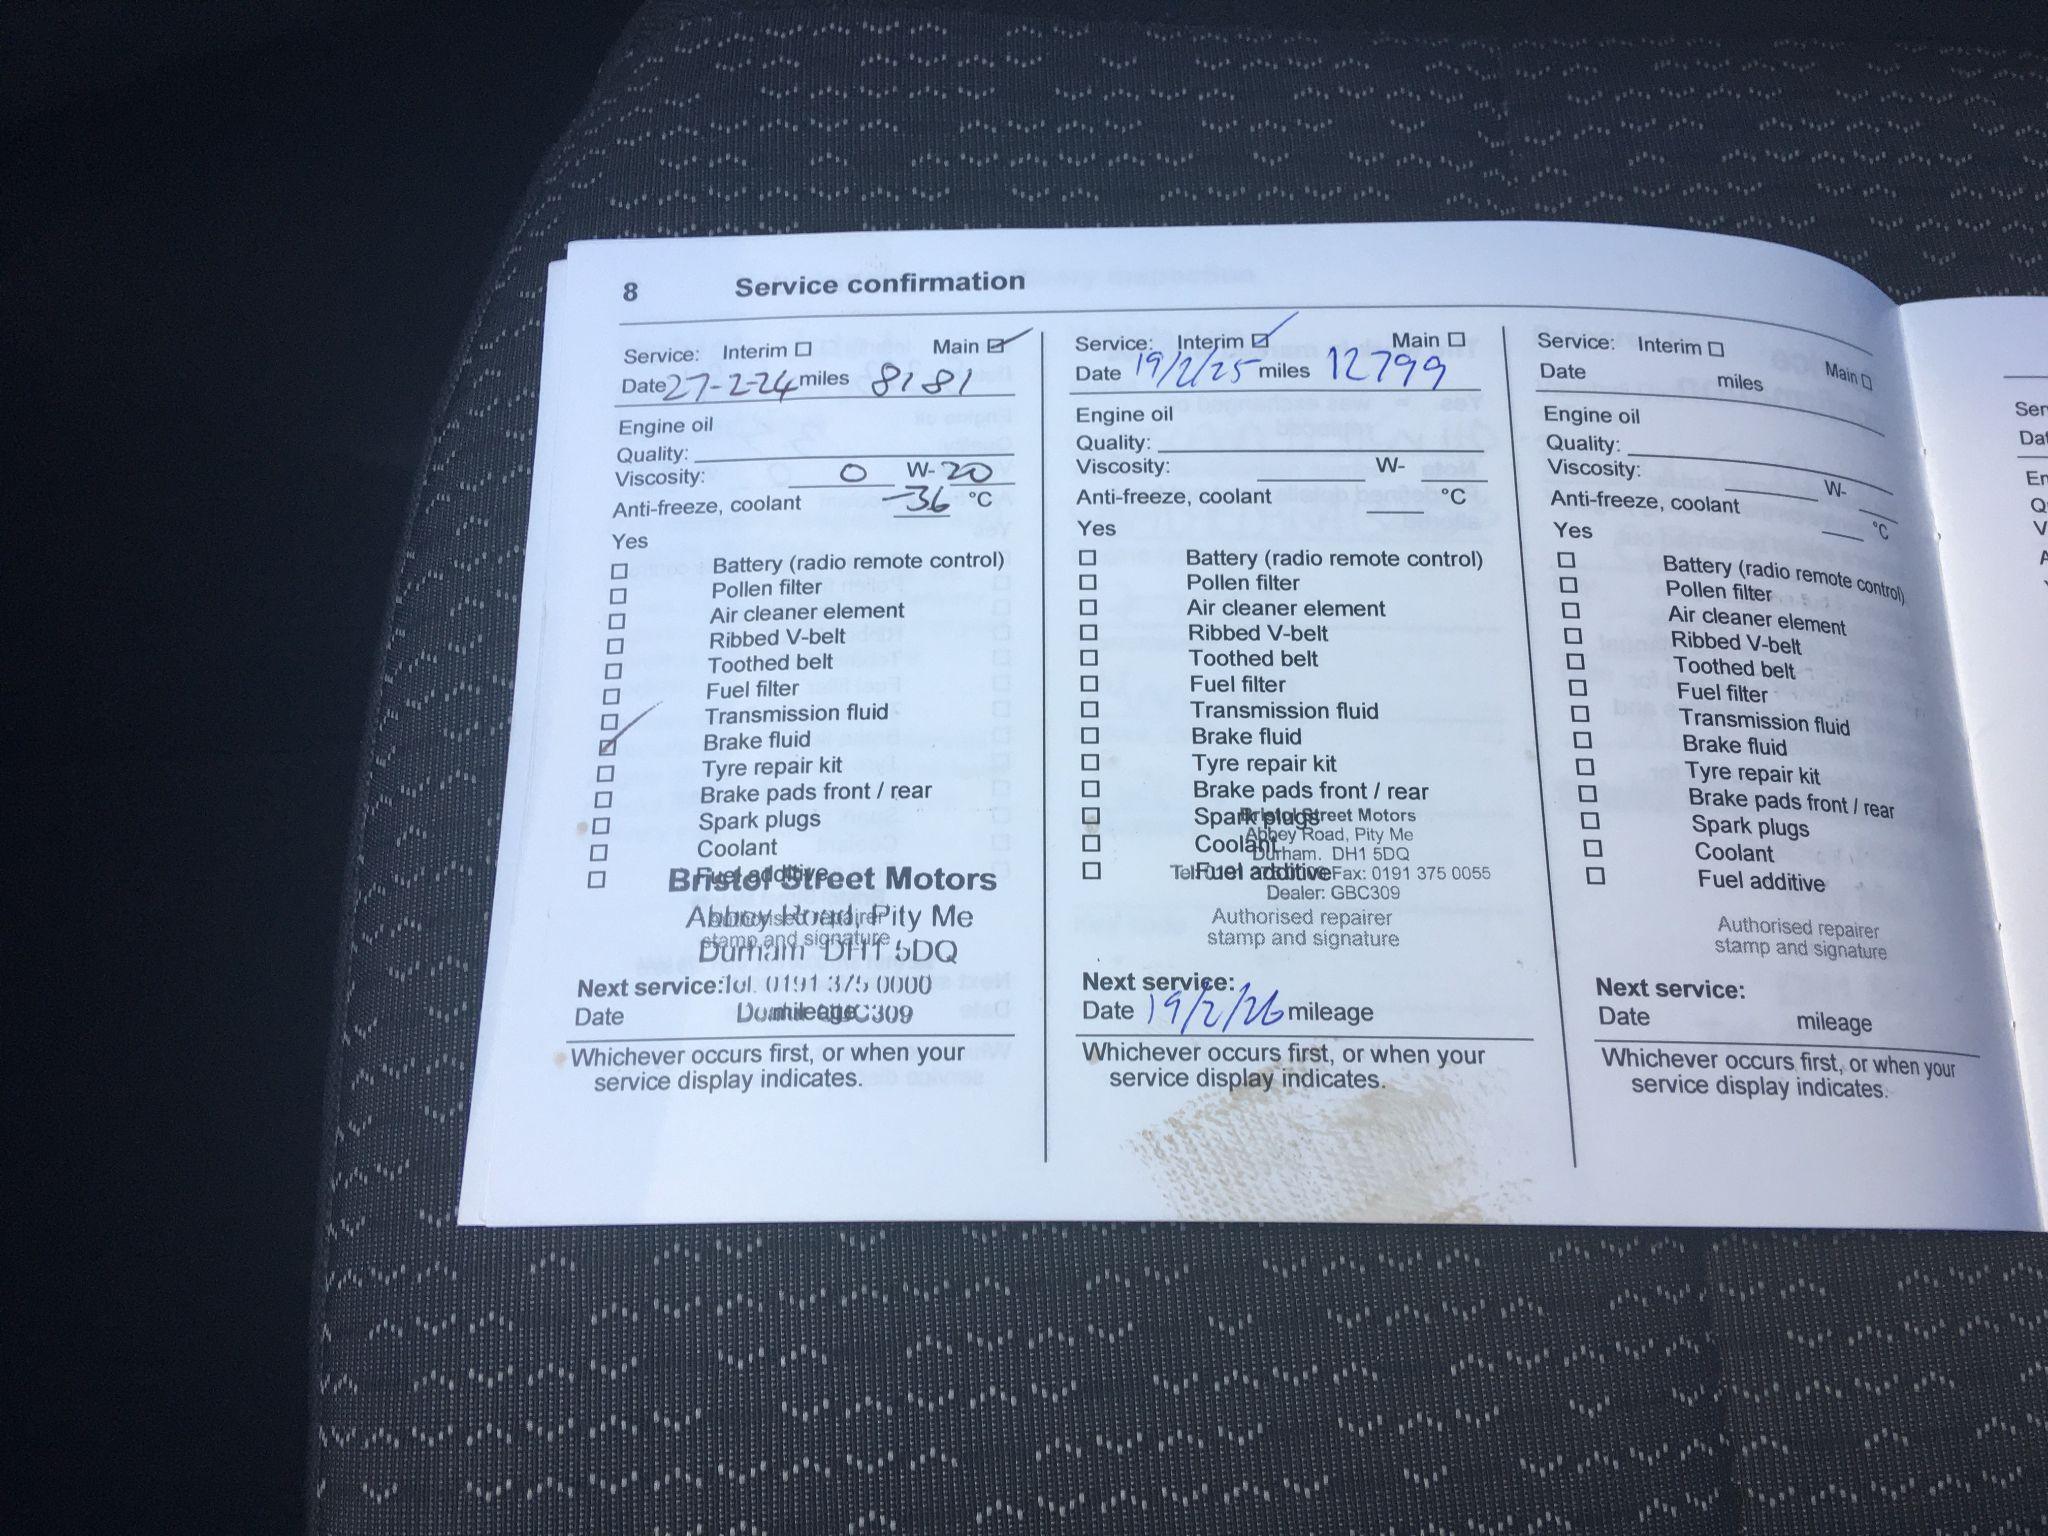 8 Service confirmation
Service: Interim Main
Date 27-2-24 miles 8181
Engine oil
Quality:
Viscosity: 0 W- 20
Anti-freeze, coolant -36 °C
Yes
Battery (radio remote control)
Pollen filter
Air cleaner element
Ribbed V-belt
Toothed belt
Fuel filter
Transmission fluid
Brake fluid
Tyre repair kit
Brake pads front / rear
Spark plugs
Coolant
Fuel additive
Bristol Street Motors
Abbey Road, Pity Me
Authorised repairer
stamp and signature
Durham DH1 5DQ
Next service: Tel. 0191 375 0000
Date mileage
GBC309
Whichever occurs first, or when your
service display indicates.
Service: Interim Main
Date 19/2/25 miles 12799
Engine oil
Quality:
Viscosity: W-
Anti-freeze, coolant °C
Yes
Battery (radio remote control)
Pollen filter
Air cleaner element
Ribbed V-belt
Toothed belt
Fuel filter
Transmission fluid
Brake fluid
Tyre repair kit
Brake pads front / rear
Spark plugs
Bristol Street Motors
Abbey Road, Pity Me
Coolant
Durham. DH1 5DQ
Fuel additive
Tel: Fax: 0191 375 0055
Dealer: GBC309
Authorised repairer
stamp and signature
Next service:
Date 19/2/26 mileage
Whichever occurs first, or when your
service display indicates.
Service: Interim Main
Date miles
Engine oil
Quality:
Viscosity: W-
Anti-freeze, coolant °C
Yes
Battery (radio remote control)
Pollen filter
Air cleaner element
Ribbed V-belt
Toothed belt
Fuel filter
Transmission fluid
Brake fluid
Tyre repair kit
Brake pads front / rear
Spark plugs
Coolant
Fuel additive
Authorised repairer
stamp and signature
Next service:
Date mileage
Whichever occurs first, or when your
service display indicates.